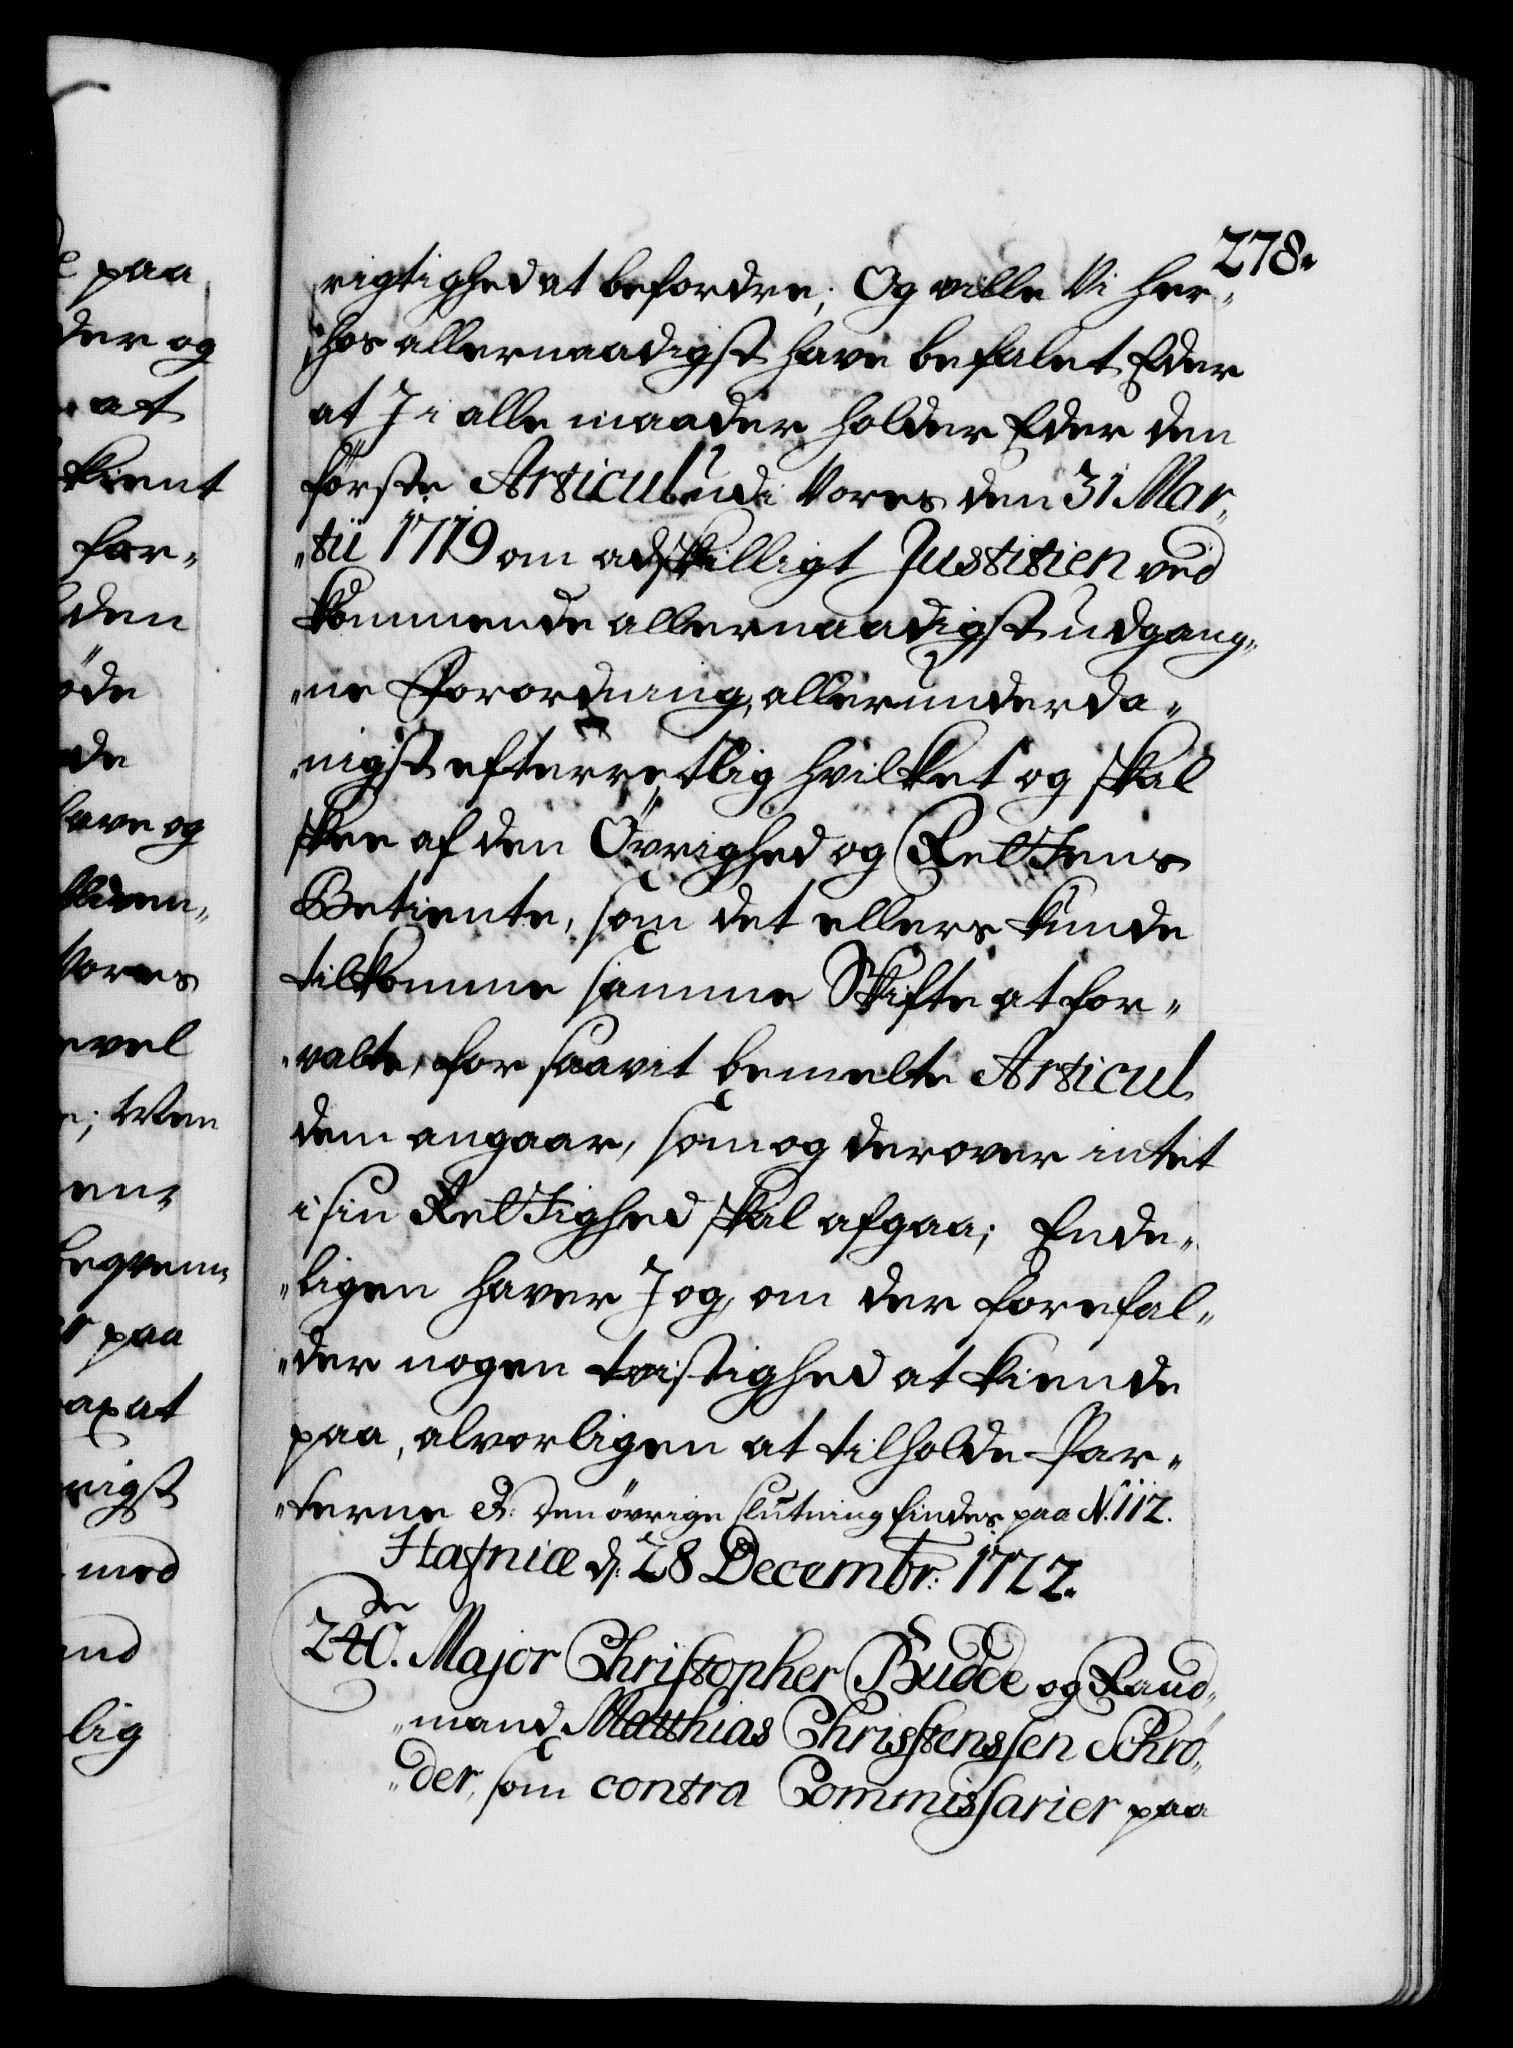 278.
rigtighed at befordre; Og ville Vi her„
hos allernaadigst have befalet Eder
at I i alle maader holder Eder den
förste Articul udi Vores den 31 Mar„
„tii 1719 om adskilligt Justitien ved
kommende allernaadigst udgang„
„ne Forordning, allerunderda„
„nigst efterrettlig hvilket og skal
skee af den Övrighed og Rettens
Betiente, som det ellers kunde
tilkomme samme Skifte at for„
„valte, for saavit bemelte Articul
dem angaar, som og derover intet
i sin Rettighed skal afgaa; Ende„
„ligen haver I og, om der forefal„
„der nogen tvistighed at kiende
paa, alvorligen at tilholde Par„
„terne &: den övrige slutning findes paa N. 112.
Hafniæ d: 28 Decembr: 1722.
240. Major Christopher Budde og Raad„
„mand Matthias Christenssen Schrö„
„der, som contra Commissarier paa
paa
der og
at
kient
for„
den
öde
de
have og
Vores
evel
; Men
paa
nigst
med
lig